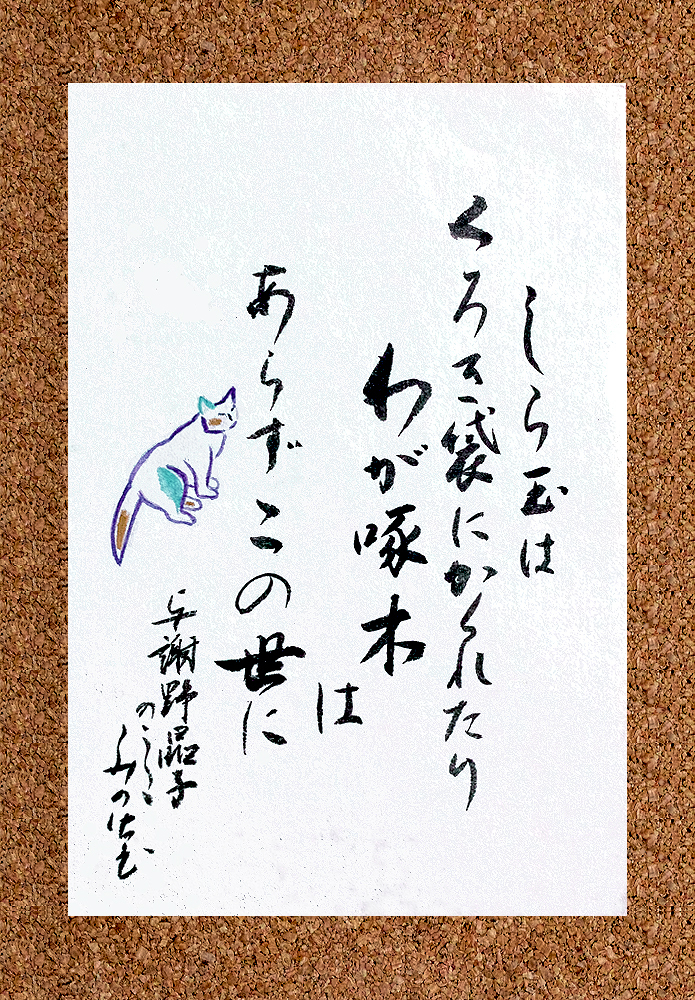 しら玉は
くろき袋にかくれたり
わが啄木
は
あらずこの世に
与謝野晶子
のこゝろ